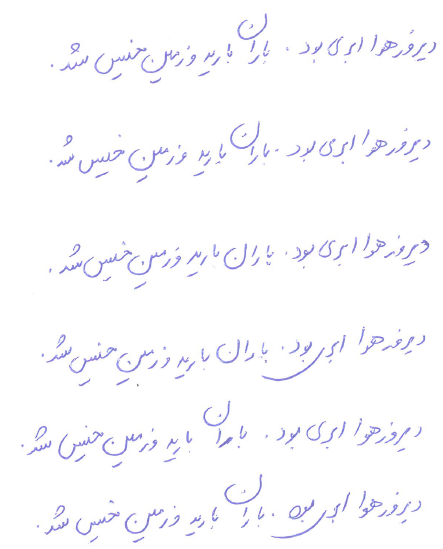 دیروز هوا ابری بود . باران بارید و زمین خیس شد .
دیروز هوا ابری بود . باران بارید و زمین خیس شد .
دیروز هوا ابری بود . باران بارید و زمین خیس شد .
دیروز هوا ابری بود . باران بارید و زمین خیس شد .
دیروز هوا ابری بود . باران بارید و زمین خیس شد .
دیروز هوا ابری بود . باران بارید و زمین خیس شد .